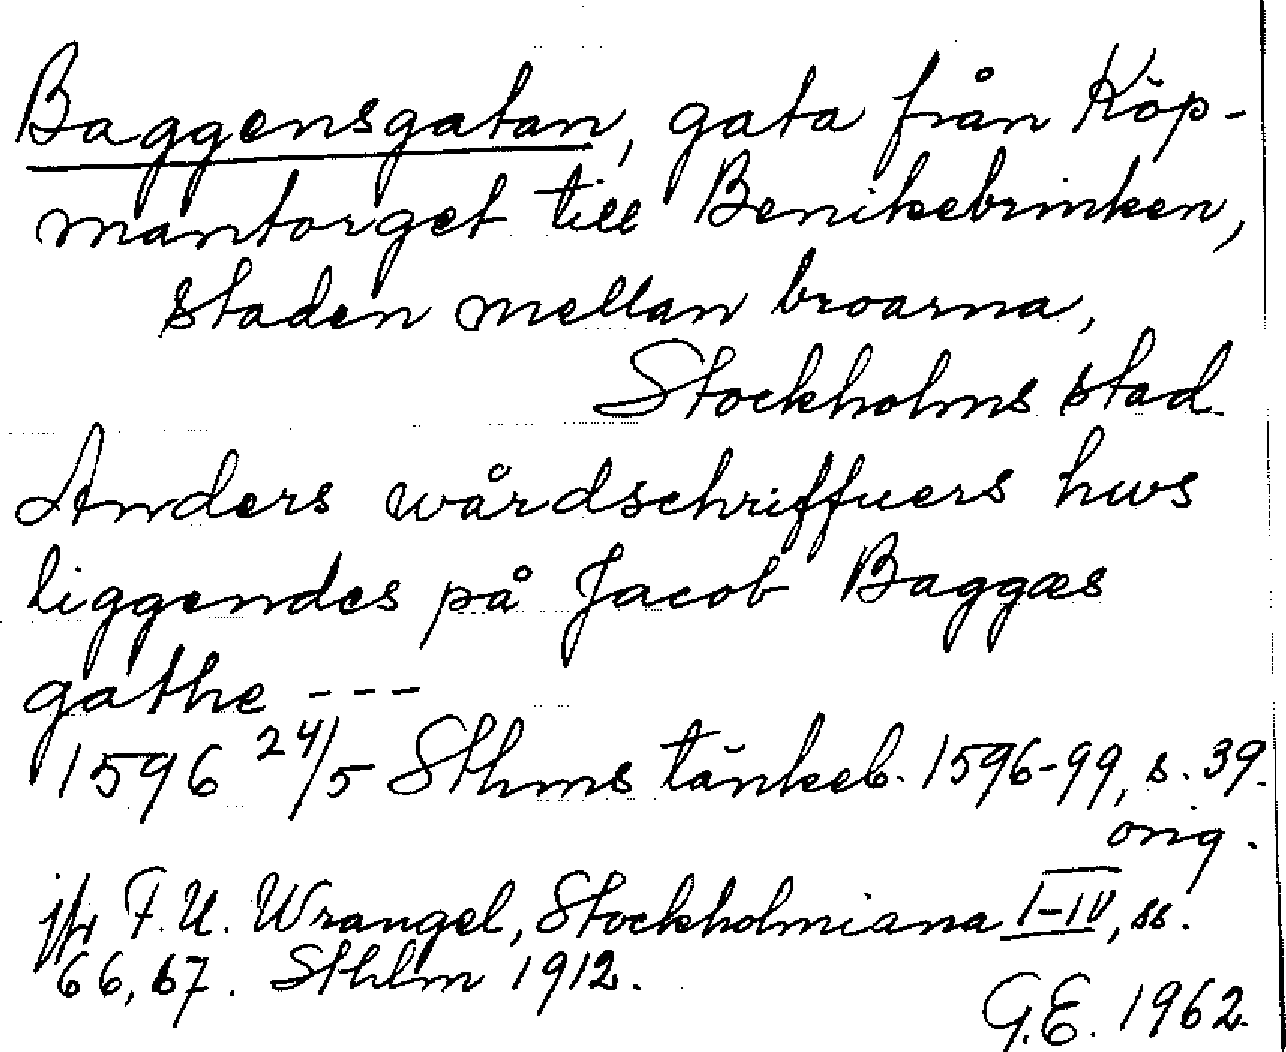 Baggensgatan, gata från Köp-
mantorget till Benikebrinken,
staden mellan broarna,
Stockholms stad
Anders wårdschriffuers hws
liggendes på Jacob Baggæs
gathe ---
1596 24/5 Sthms tänkeb. 1596-99, s. 39.
orig.
jfr F.U. Wrangel, Stockholmiana I-IV, ss.
66, 67. Sthlm 1912.
G.E. 1962.